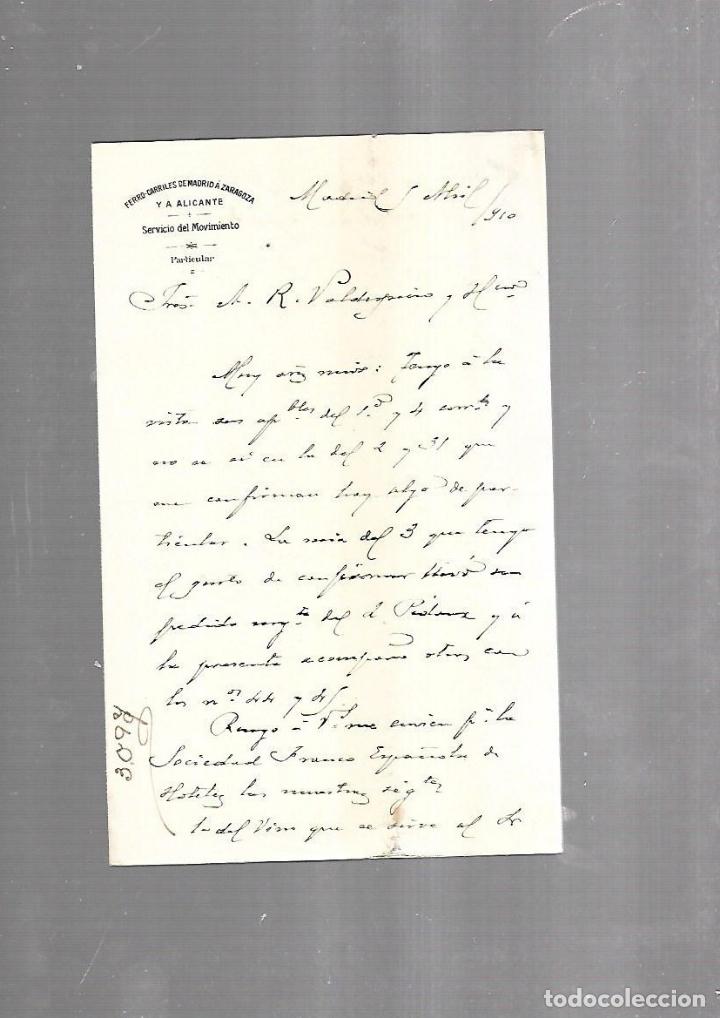 FERRO-CARRILES DE MADRID Á ZARAGOZA
Y A ALICANTE
Servicio del Movimiento
Particular
Madrid 5 Abril /910
Sres. A. R. Valdespino y Hno
Muy sres mios: Tengo á la
vista sus apbles del 1º y 4 corrte y
no se si en la del 2 y 31 que
me confirman hay algo de par-
ticular. La mia del 3 que tengo
el gusto de confirmar llevó un
pedido del Sr. y á
la presente acompaño otros con
los nos 44 y 45
Ruego á Vs me envien pª la
Sociedad Franco Española de
Hoteles las muestras sigtes
1 del Vino que se sirve al Sr
3093
todocoleccion
todocoleccion.net